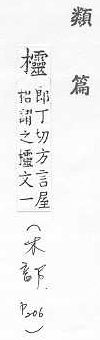 類篇
欞郎丁切方言屋
梠謂之欞文一
(木部 P.206)